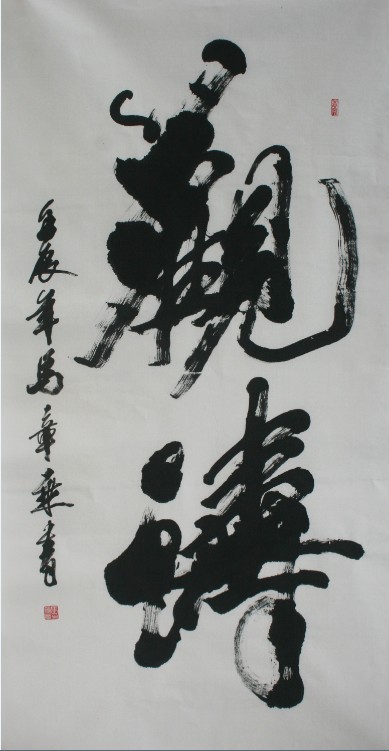 觀濤
壬辰年馬章乘書